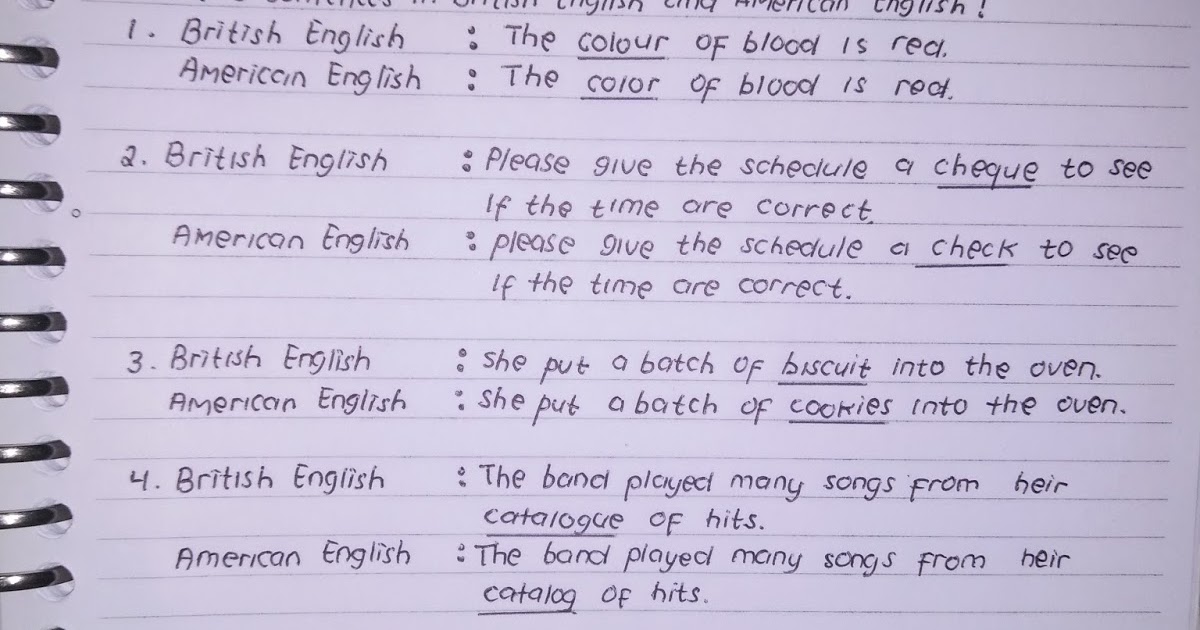 sentences in British English and American English!
1. British English : The colour of blood is red.
American English : The color of blood is red.
2. British English : Please give the schedule a cheque to see
if the time are correct.
American English : please give the schedule a check to see
if the time are correct.
3. British English : she put a batch of biscuit into the oven.
American English : she put a batch of cookies into the oven.
4. British English : The band played many songs from heir
catalogue of hits.
American English : The band played many songs from heir
catalog of hits.